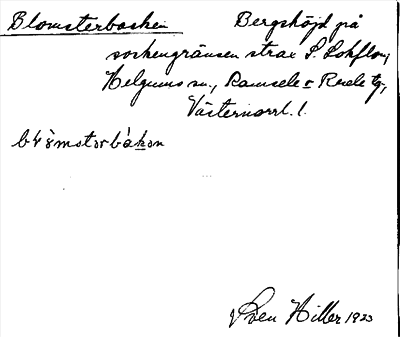 Blomsterbacken Bergshöjd på
sockengränsen strax S. Lokflon,
Helgums sn, Ramsele o Resele tg,
Västernorrl. l.
Sven Hiller 1923